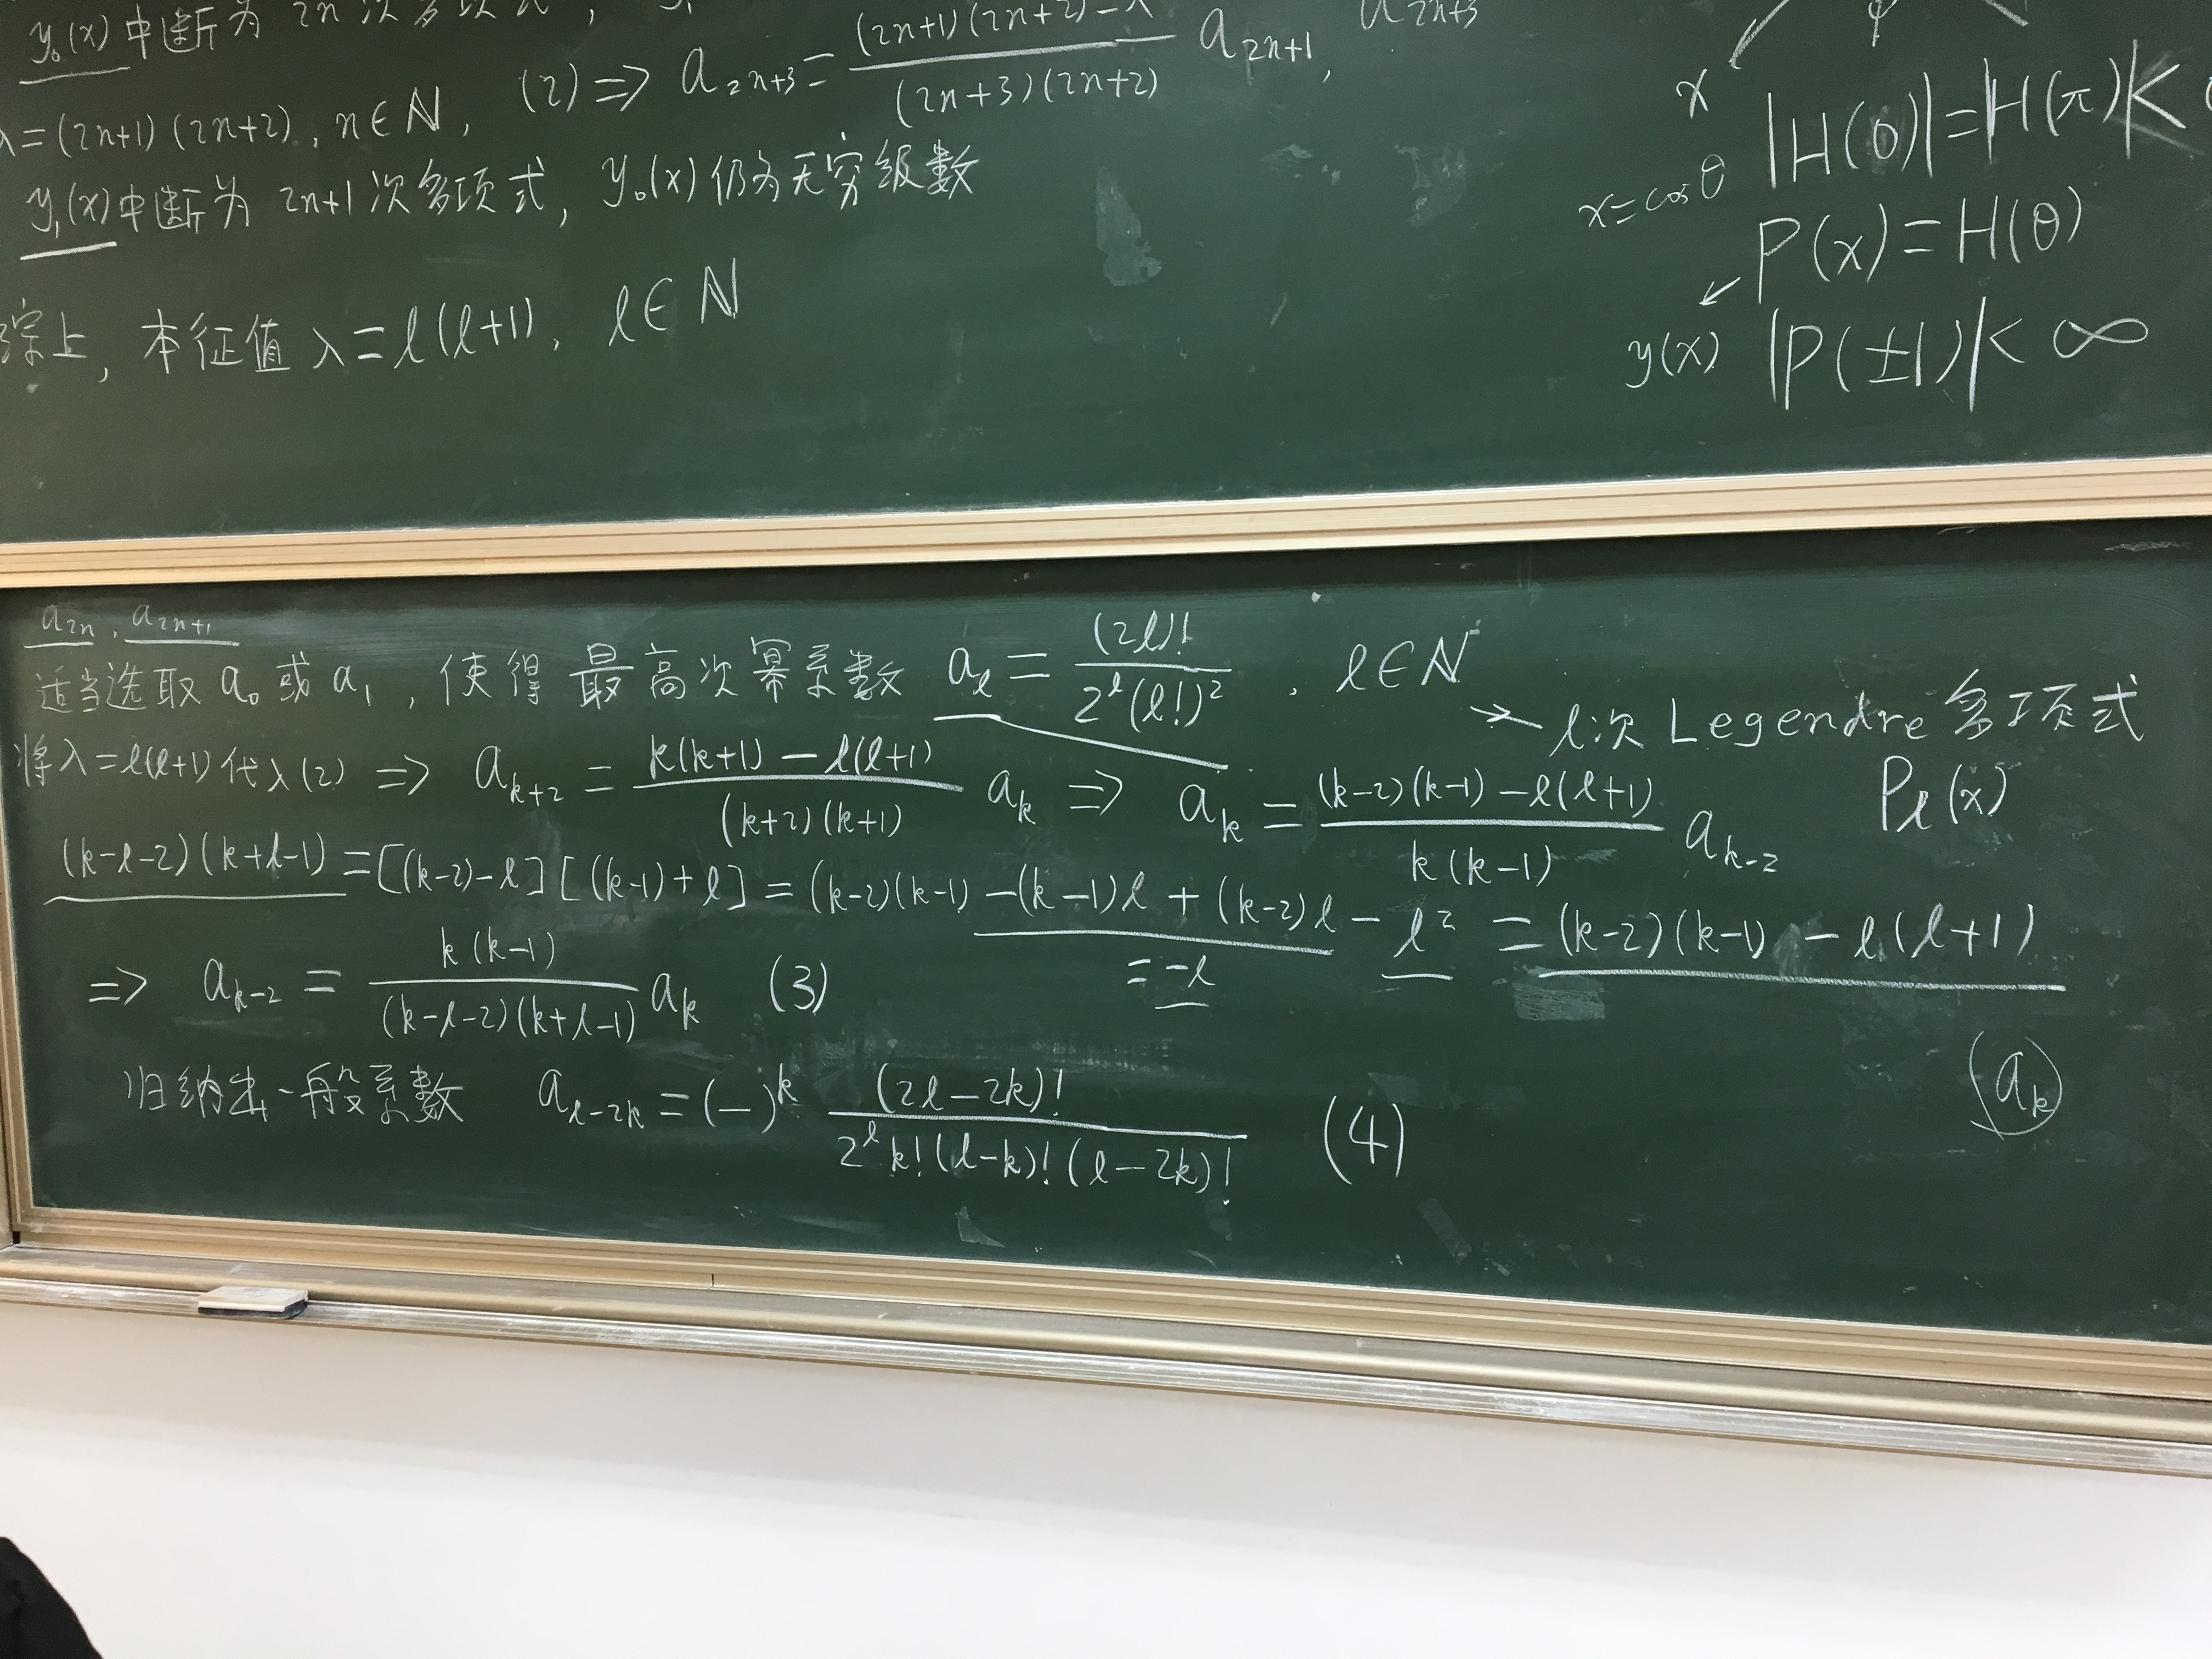 y₀(x)中断为 2n 次多项式,
(2) => a_{2n+3} = \frac{(2n+1)(2n+2)-λ}{(2n+3)(2n+2)} a_{2n+1}, a_{2n+3}
λ=(2n+1)(2n+2), n∈ℕ,
y₁(x)中断为 2n+1 次多项式, y₀(x)仍为无穷级数
综上, 本征值 λ=ℓ(ℓ+1), ℓ∈ℕ
x
|H(0)|=|H(π)|<
x=cosθ
P(x)=H(θ)
y(x) |P(±1)|<∞
a_{2n}, a_{2n+1}
适当选取 a₀ 或 a₁, 使得 最高次幂系数 a_ℓ = \frac{(2ℓ)!}{2^ℓ(ℓ!)^2}, ℓ∈ℕ
→ ℓ次 Legendre 多项式
P_ℓ(x)
将λ=ℓ(ℓ+1)代入(2) => a_{k+2} = \frac{k(k+1)-ℓ(ℓ+1)}{(k+2)(k+1)} a_k => a_k = \frac{(k-2)(k-1)-ℓ(ℓ+1)}{k(k-1)} a_{k-2}
(k-ℓ-2)(k+ℓ-1)=[(k-2)-ℓ][(k-1)+ℓ]=(k-2)(k-1)-(k-1)ℓ+(k-2)ℓ-ℓ²=(k-2)(k-1)-ℓ(ℓ+1)
=-ℓ
=> a_{k-2} = \frac{k(k-1)}{(k-ℓ-2)(k+ℓ-1)} a_k (3)
归纳出一般系数 a_{ℓ-2k} = (-)^k \frac{(2ℓ-2k)!}{2^ℓ k!(ℓ-k)!(ℓ-2k)!} (4)
a_k